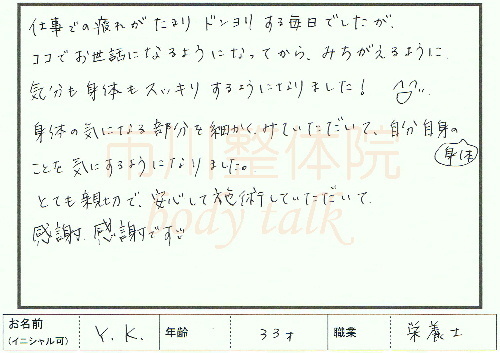 仕事での疲れがたまり ドンヨリする毎日でしたが、
ココでお世話になるようになってから、みちがえるように
気分も身体もスッキリするようになりました！
身体の気になる部分を細かくみていただいて、自分自身の
身体
ことを気にするようになりました。
とても親切で、安心して施術していただいて、
感謝、感謝です。
市川整体院
body talk
お名前
(イニシャル可)
Y.K.
年齢
33才
職業
栄養士